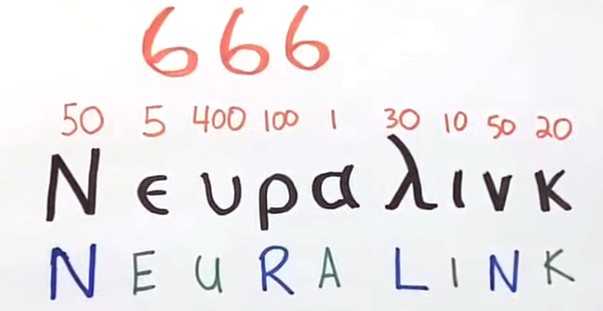 666
50 5 400 100 1 30 10 50 20
Νευραλινκ
NEURALINK